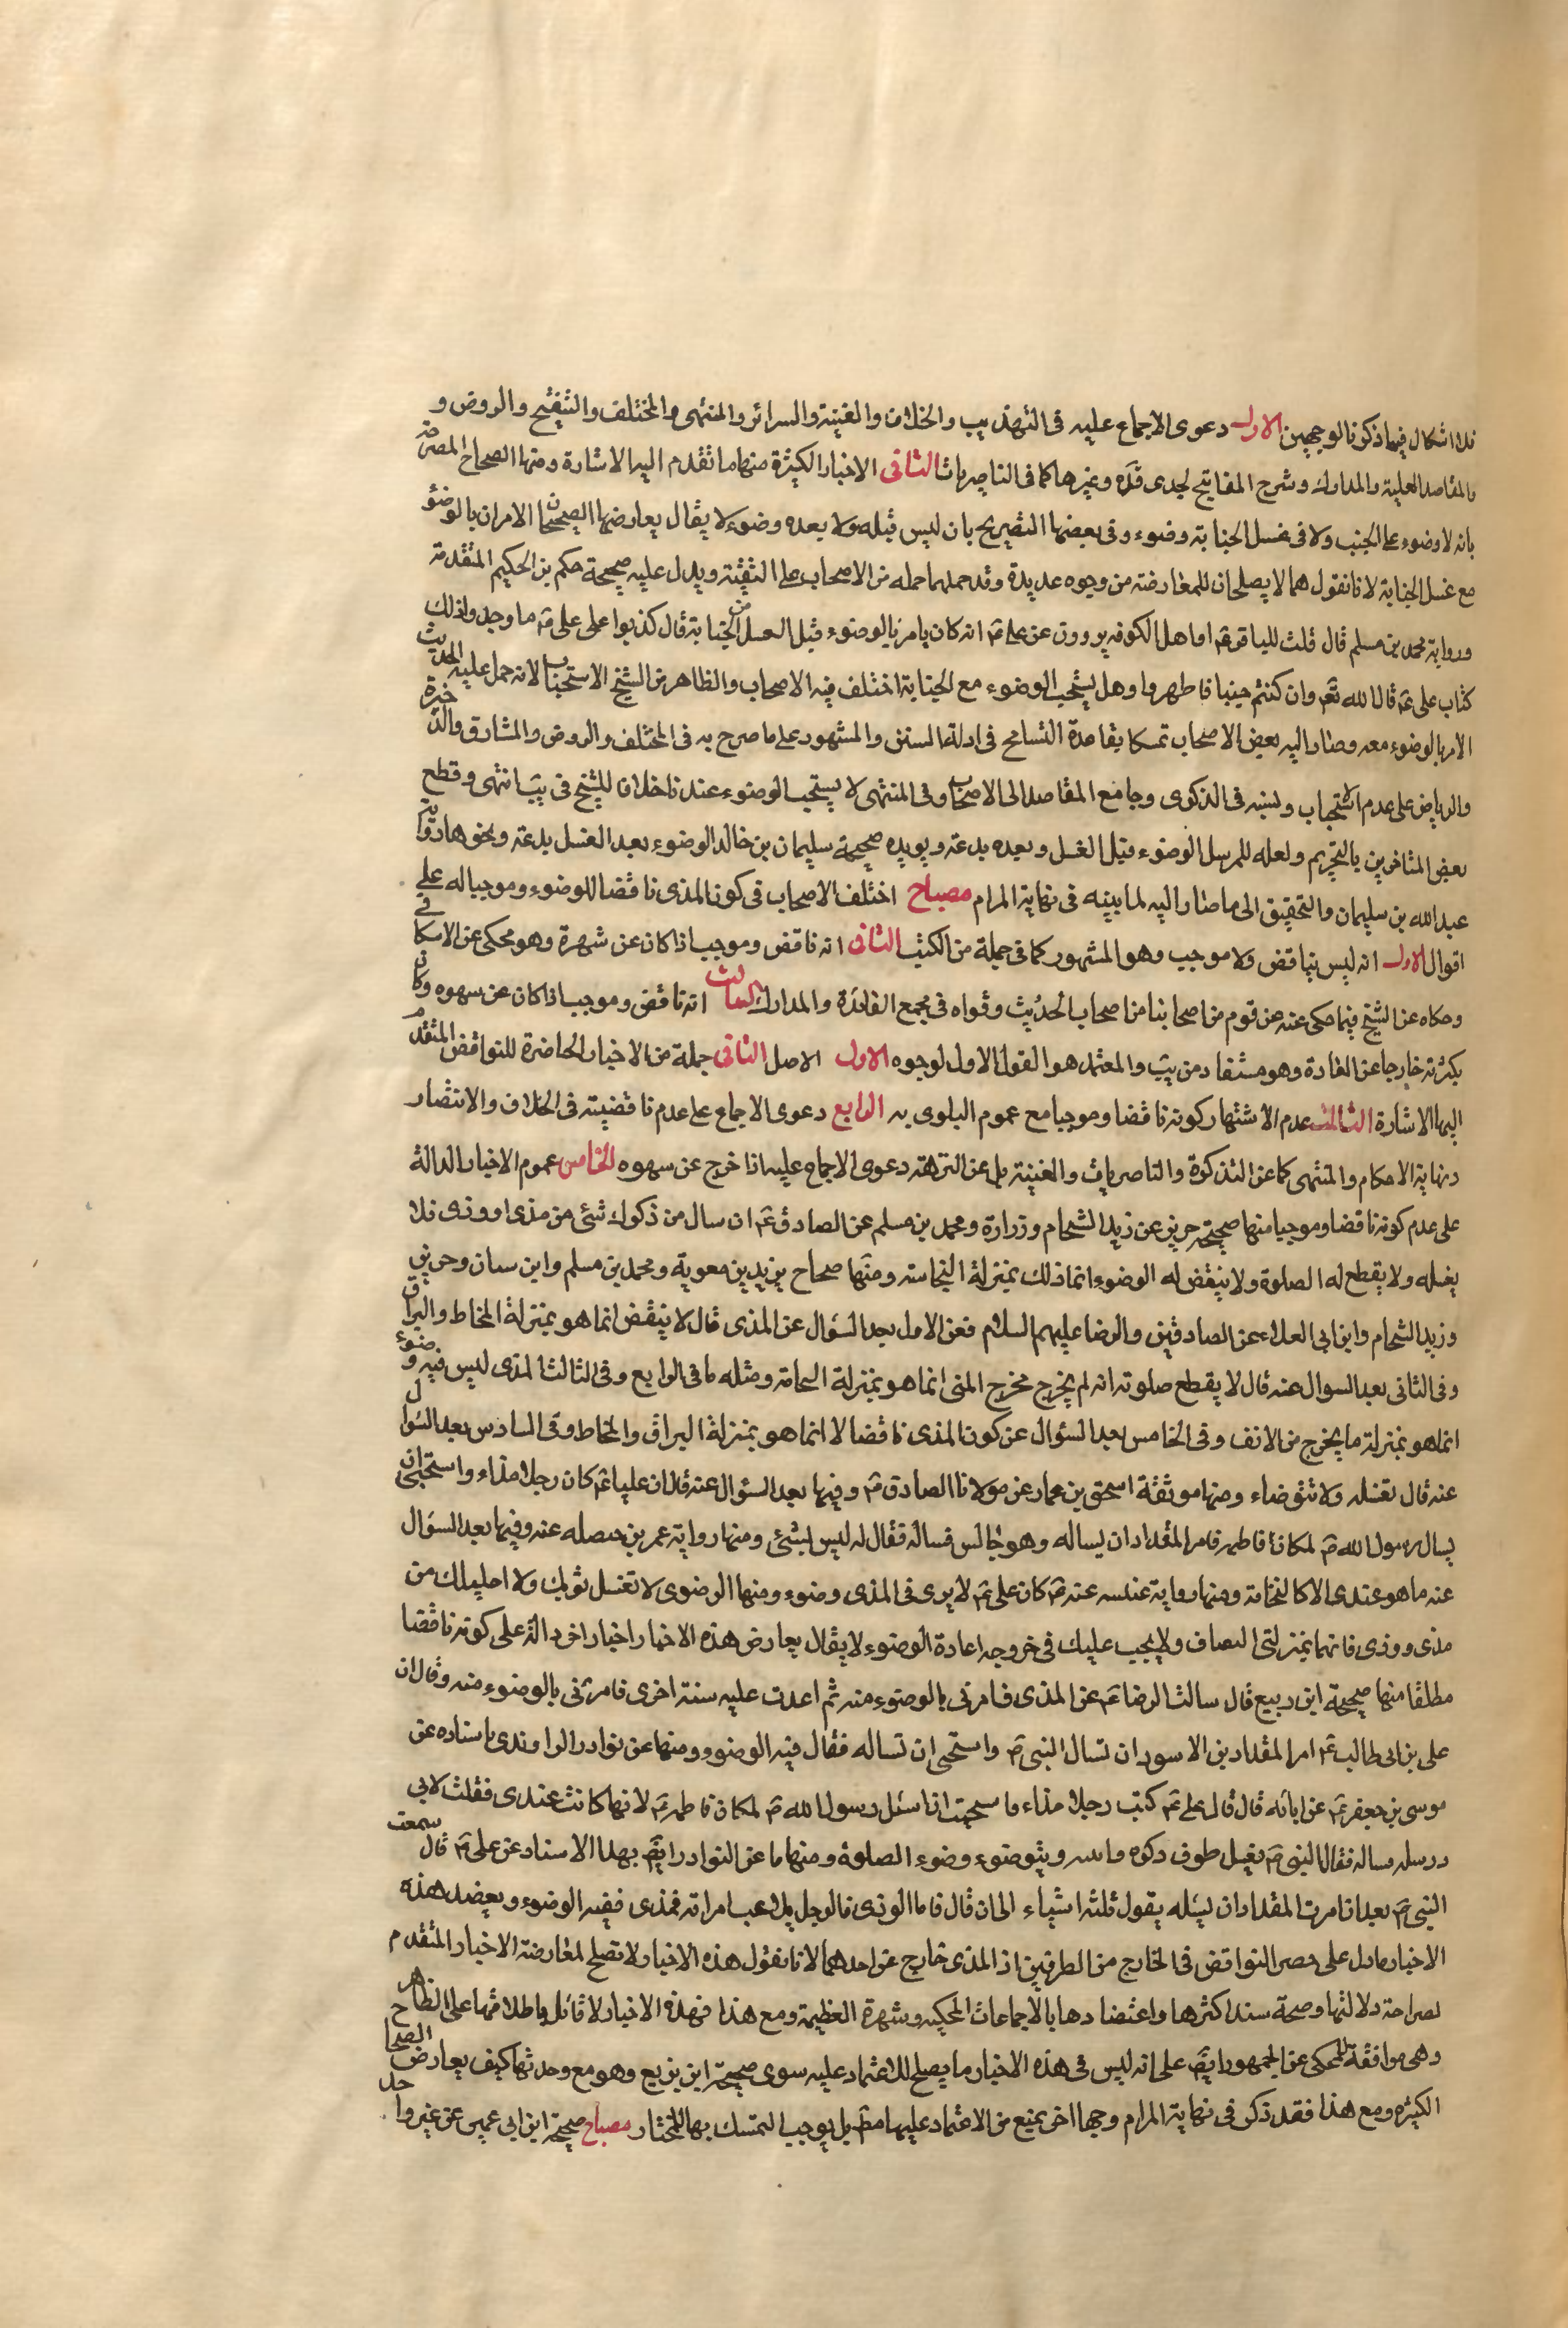 فلا اشكال فيما ذكرنا لوجهين الاول دعوى الاجماع عليه فى التهذيب والخلاف والغنية والسرائر والمنتهى والمختلف والتنقيح والروض و
المقاصد العلية والمدارك وشرح المفاتيح لجدى قده وغيرها كما فى الناصريات الثانى الاخبار الكثيرة منها ما تقدم اليه الاشارة ومنها الصحاح المصرحة
بانه لا وضوء على الجنب ولا فى غسل الجنابة وضوء وفى بعضها التصريح بان ليس قبله ولا بعده وضوء لا يقال يعارضها الصحيحان الامران بالوضوء
مع غسل الجنابة لانا نقول هما لا يصلحان للمعارضة من وجوه عديدة وقد حملهما جملة من الاصحاب على التقية ويدل عليه صحيحة حكم بن الحكيم المتقدمة
ورواية محمد بن مسلم قال قلت للباقر ع اما اهل الكوفه يروون عن على ع انه كان يامر بالوضوء قبل الغسل من الجنابة قال كذبوا على على ع ما وجد واذلك
كتاب على ع قال الله تع وان كنتم جنبا فاطهروا وهل يستحب الوضوء مع الجنابة اختلف فيه الاصحاب والظاهر من الشيخ الاستحباب لانه حمل عليه الحديث
الامر بالوضوء معه وصار اليه بعض الاصحاب تمسكا بقاعدة التسامح فى ادلة السنن والمشهور على ما صرح به فى المختلف والروض والمشارق والذخيرة
والرياض على عدم الاستحباب ونسبه فى الذكرى وجامع المقاصد الى الاصحاب وفى المنتهى لا يستحب الوضوء عندنا خلافا للشيخ فى يب انتهى وقطع
بعض المتاخرين بالتحريم ولعله للمرسل الوضوء قبل الغسل وبعده بدعة ويويده صحيحة سليمان بن خالد الوضوء بعد الغسل بدعة ونحوها رواية
عبد الله بن سليمان والتحقيق الى ما صار اليه لما بينه فى نهاية المرام مصباح اختلف الاصحاب فى كون المذى ناقضا للوضوء وموجبا له على
اقوال الاول انه ليس بناقض ولا موجب وهو المشهور كما فى جملة من الكتب الثانى انه ناقض وموجب اذا كان عن شهرة وهو محكى عن الاسكافى
وحكاه عن الشيخ فيما حكى عنه عن قوم من اصحابنا من اصحاب الحديث وقواه فى مجمع الفائدة والمدارك الثالث انه ناقض وموجب اذا كان عن سهوه وكان
بكثرته خارجا عن العادة وهو مستفاد من يب والمعتمد هو القول الاول لوجوه الاول الاصل الثانى جملة من الاخبار الحاضرة للنواقض المتقدم
اليها الاشارة الثالث عدم الاشتهار كونه ناقضا وموجبا مع عموم البلوى به الرابع دعوى الاجماع على عدم ناقضيته فى الخلاف والانتصار
ونهاية الاحكام والمنتهى كما عن التذكرة والناصريات والغنية بل عن النزهة دعوى الاجماع عليه اذا خرج عن سهوه الخامس عموم الاخبار الدالة
على عدم كونه ناقضا وموجبا منها صحيحة حريز عن زيد الشحام وزرارة ومحمد بن مسلم عن الصادق ع ان سال من ذكرك شئ من مذى او وذى فلا
يغسله ولا يقطع له الصلوة ولا ينقض له الوضوء انما ذلك بمنزلة النجاسة ومنها صحاح يزيد بن معوية ومحمد بن مسلم وابن سنان وحريز
وزيد الشحام وابن ابى العلاء عن الصادقين والرضا عليهم السلام فعن الاول بعد السؤال عن المذى قال لا ينقض انما هو بمنزلة المخاط والبراق
وفى الثانى بعد السوال عنه قال لا يقطع صلوته انه لم يخرج مخرج المنى انما هو بمنزلة النخامة ومثله ما فى الرابع وفى الثالث المذى ليس فيه وضوء
انما هو بمنزلة ما يخرج من الانف وفى الخامس بعد السئوال عن كون المذى ناقضا لا انما هو بمنزلة البراق والمخاط وفى السادس بعد السئوال
عنه قال تغسله ولا تتوضاء ومنها موثقة اسحق بن عمار عن مولانا الصادق ع وفيها بعد السئوال عنه قال ان عليا ع كان رجلا مذاء واستحيى ان
يسال رسول الله ص لمكان فاطمه فامر المقداد ان يساله وهو جالس فساله فقال له ليس بشئ ومنها رواية عمر بن حنصله عنه وفيها بعد السؤال
عنه ما هو عندى الا كالنخامة ومنها رواية عنبسه عنه ع كان على ع لا يرى فى المذى وضوء ومنها الرضوى لا تغسل ثوبك ولا احليلك من
مذى وودى فانهما بمنزلتى البصاق ولا يجب عليك فى خروجه اعادة الوضوء لا يقال يعارض هذه الاخبار اخبار اخر دالة على كونه ناقضا
مطلقا منها صحيحة ابن ربيع قال سالت الرضا ع عن المذى فامرنى بالوضوء منه ثم اعدت عليه سنة اخرى فامرنى بالوضوء منه وقال ان
على بن ابى طالب ع امر المقداد بن الاسود ان تسال النبى ص واستحى ان تساله فقال فيه الوضوء ومنها عن نوادر الراوندى باسناده عن
موسى بن جعفر ع عن ابائه قال قال على ع كنت رجلا مذاء فاستحييت ان اسئل رسول الله ص لمكان فاطمه ع لانها كانت عندى فقلت لابى
ذر سله فساله فقال النبى ص يغسل طرف ذكره وانثييه ويتوضوء وضوء الصلوة ومنها ما عن النوادر ايض بهذا الاسناد عن على ع قال سمعت
النبى ص بعد ان امرت المقداد ان يسئله يقول ثلثه اشياء الى ان قال فاما الوذى فالرجل يلاعب امراته فمذى ففيه الوضوء ويعضد هذه
الاخبار ما دل على حصر النواقض فى الخارج من الطرفين اذ المذى خارج عن احدهما لانا نقول هذه الاخبار لا تصلح لمعارضة الاخبار المتقدم
لصراحة دلالتها وصحة سند اكثرها واعتضادها بالاجماعات المحكيه وشهرة العظيمة ومع هذا فهذه الاخبار لا قائل باطلاقها على الظاهر
وهى موافقة للمحكى عن الجمهور ايض على انه ليس فى هذه الاخبار ما يصلح للاعتماد عليه سوى صحيحة ابن بزيع وهو مع وحدتها كيف يعارض الصحاح
الكثيره ومع هذا فقد ذكر فى نهاية المرام وجها اخر يمنع من الاعتماد عليها مط بل يوجب التمسك بها للمختار مصباح صحيحة ابن ابى عمير عن غير واحد